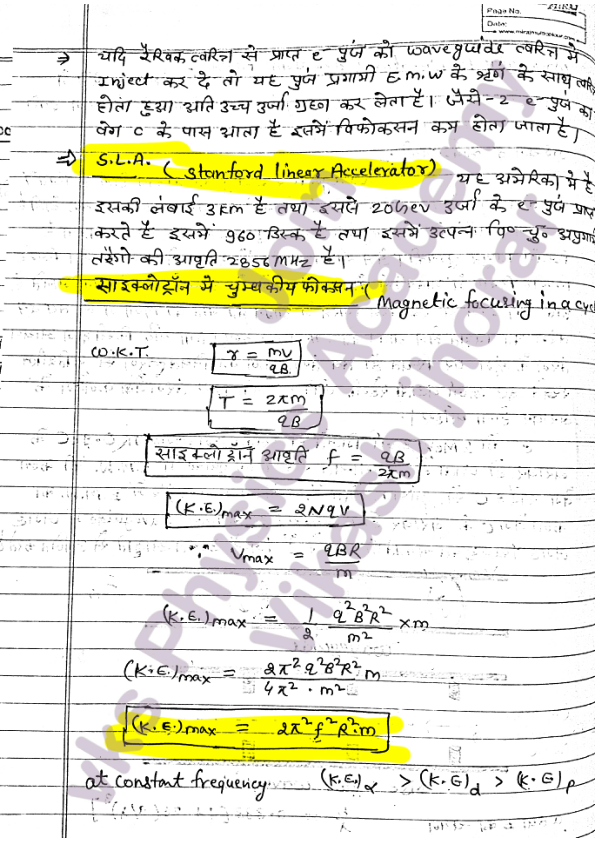 Page No.
Date:
→ यदि रैखिक त्वरित्र से प्राप्त e⁻ पुंज को waveguide त्वरित्र में
Inject कर दे तो यह पुंज प्रगामी E.m.w के श्रृंग के साथ त्वरि
होता हुआ अति उच्च उर्जा ग्रहण कर लेता है। जैसे-2 e⁻ पुंज का
वेग c के पास आता है इसमें विफोकसन कम होता जाता है।
⇒ S.L.A. ( Stanford linear Accelerator)
यह अमेरिका मे है
इसकी लंबाई 3km है तथा इससे 20Gev उर्जा के e⁻ पुंज प्राप्त
करते है इसमें 960 डिस्क है तथा इसमें उत्पन्न वि० चु० अप्रगा
तरंगो की आवृति 2856 MHz है।
साइक्लोट्रॉन मे चुम्बकीय फोक्सन ( Magnetic focusing in a cyc
W.K.T. r = mv/qB
T = 2πm/qB
साइक्लोट्रॉन आवृति f = qB/2πm
(K.E)max = 2NqV
∵ Vmax = qBR/m
(K.E.)max = 1/2 q²B²R²/m² ×m
(K.E.)max = 2π²q²B²R²m/4π².m²
(K.E.)max = 2π²f²R².m
at constant frequency (K.E.)α > (K.E)d > (K.E)p
vks Physics Academy
Vikash jhorar